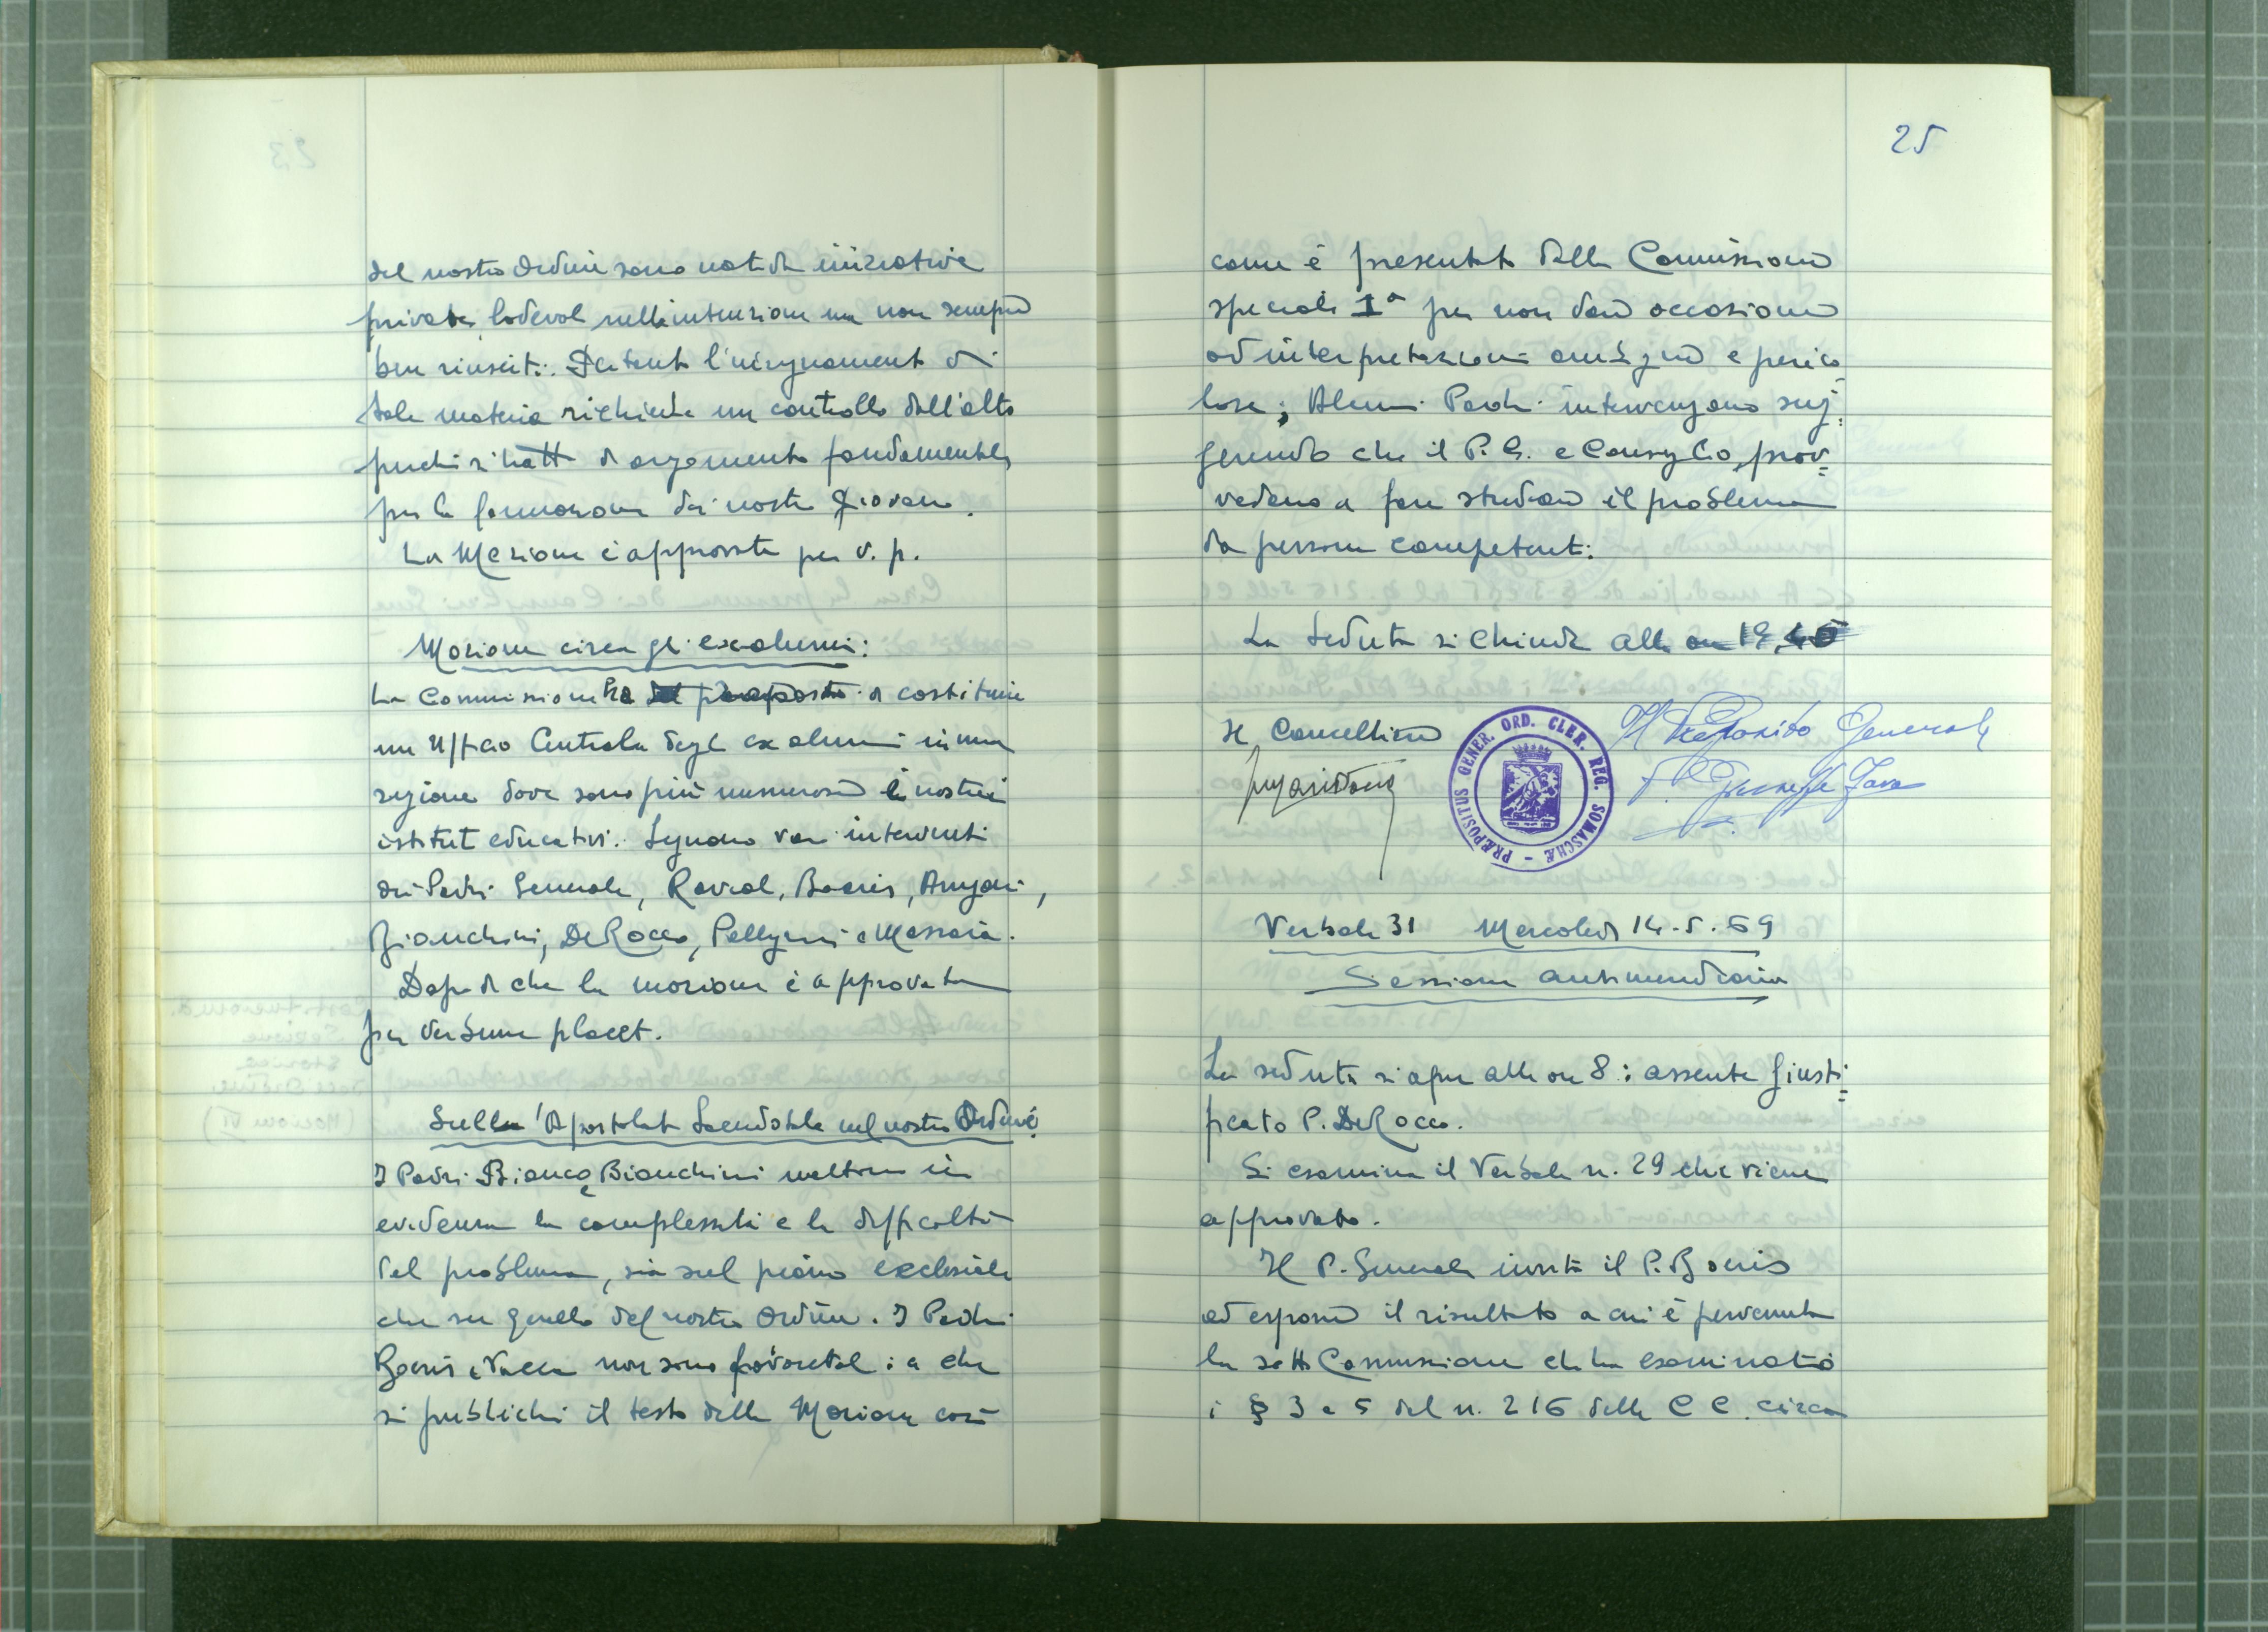 del nostro Ordine sono nati da iniziative
private, lodevoli nella intenzione ma non sempre
ben riusciti. Pertanto l'insegnamento di
tale materia richiede un controllo dall'alto
perchè si tratta di argomento fondamentale
per la formazione dei nostri giovani.
La Mozione è approvata per v. p.
Mozione circa gli ex-alunni:
La Commissione ha proposto di costituire
un Ufficio Centrale degli ex alunni in una
regione dove sono più numerosi i nostri
istituti educativi. Seguono vari interventi
dei Padri Generale, Raviol, Boeris, Arrigoni,
Bianchini, De Rocco, Pellegrini e Massaia.
Dopo di che la mozione è approvata
per verbum placet.
Sull'Apostolato Sacerdotale nel nostro Ordine
I Padri Bianco e Bianchini mettono in
evidenza la complessità e la difficoltà
del problema, sia sul piano ecclesiale
che su quello del nostro Ordine. I Padri
Boeris e Vacca non sono favorevoli a che
si pubblichi il testo della Mozione così
25
come è presentato dalla Commissione
speciale 1ª per non dare occasione
ad interpretazioni ambigue e perico-
lose; Alcuni Padri intervengono sug-
gerendo che il P. G. e Consiglio prov-
vedano a fare studiare il problema
da persone competenti.
La seduta si chiude alle ore 19,
Il Cancelliere
Il Preposito Generale
P. Giuseppe Fava
PRÆPOSITUS GENER. ORD. CLER. REG. SOMASCHÆ
Verbale 31 Mercoledì 14.5.69
Sessione antimeridiana
La seduta si apre alle ore 8: assente giusti-
ficato P. De Rocco.
Si esamina il Verbale n. 29 che viene
approvato.
Il P. Generale invita il P. Boeris
ad esporre il risultato a cui è pervenuta
la sotto Commissione che ha esaminato
i § 3 e 5 del n. 216 delle C C. circa